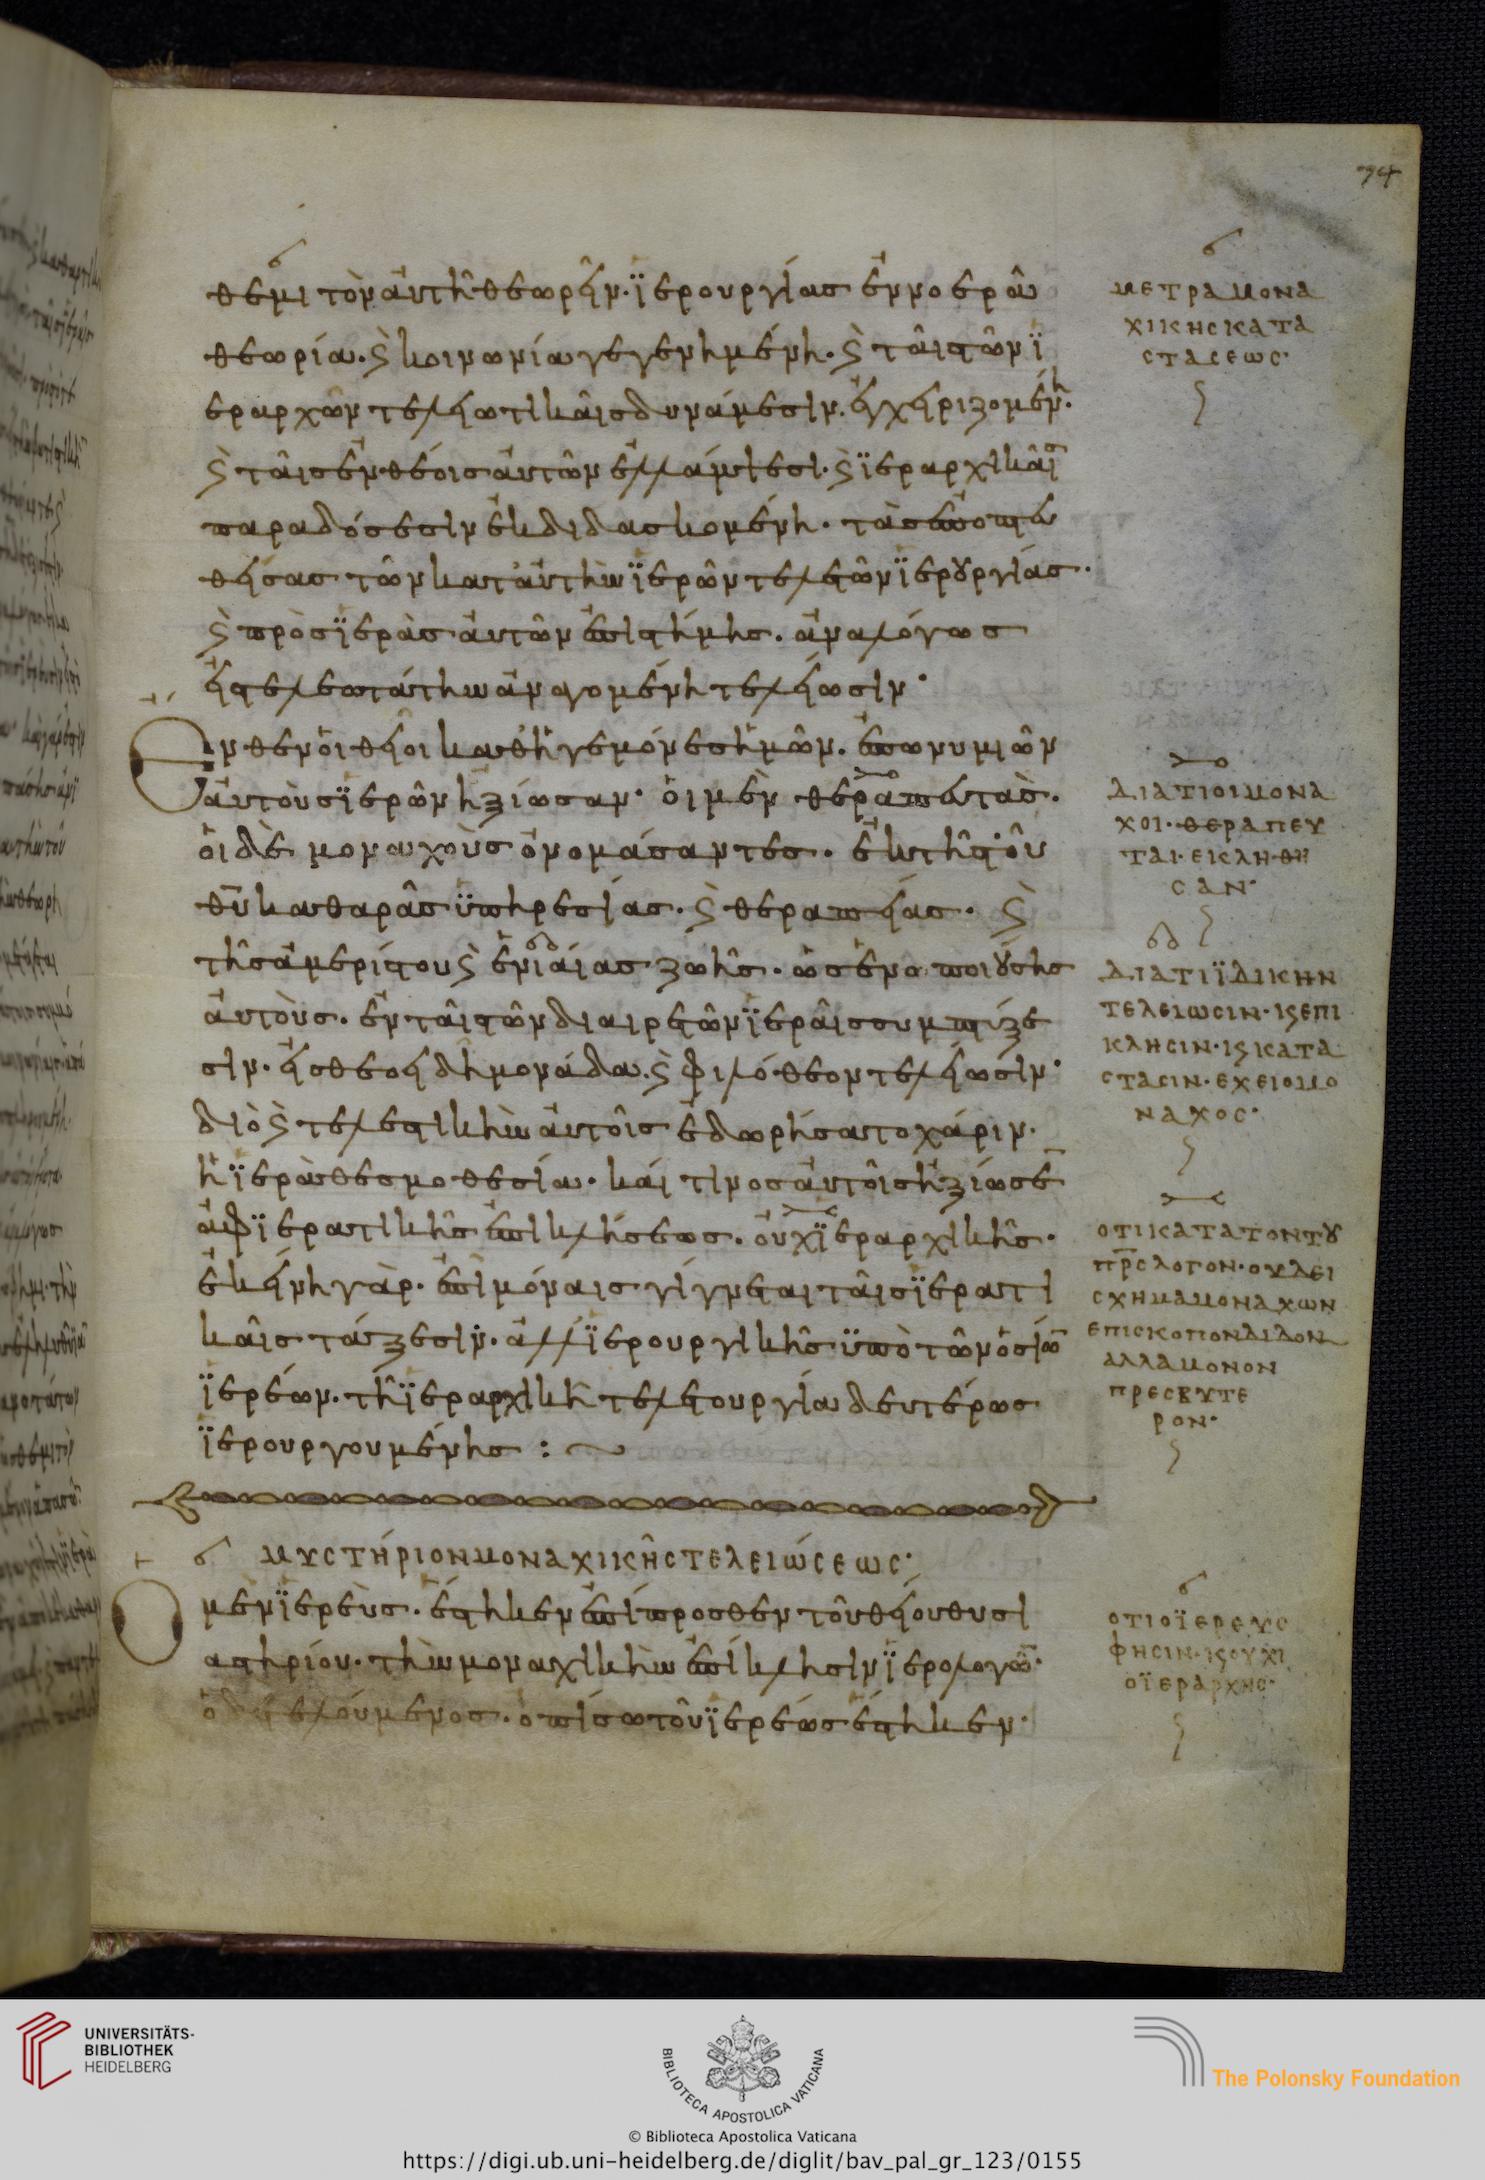 74
θεμιτὸν ἀυτῆ θεωρεῖν· ϊερουργίας ἐν νοερᾶ
θεωρία. ϗ κοινωνία γεγενημένη. ϗ τᾶις τῶν ϊ
εραρχῶν τελειωτικᾶις δυνάμεσιν. ἐγχειριζομένη.
ϗ τᾶις ἐνθέοις ἀυτῶν ἐλλάμψεσι. ϗ ϊεραρχικᾶις
παραδόσεσιν ἐκδιδασκομένη. τὰς ἐποπτευ
θείσας τῶν κατ' ἀυτὴν ϊερῶν τελετῶν ϊερουργίας.
ϗ πρὸς ϊερὰς ἀυτῶν ἐπιστήμης. ἀναλόγως
εἰς τελεωτάτην ἀναγομένη τελείωσιν·
Ἔνθεν ὁι θεῖοι καθηγεμόνες ἡμῶν. ἐπωνυμιῶν
ἀυτοὺς ϊερῶν ἠξίωσαν· ὁι μὲν θεραπευτὰς.
ὁι δὲ μοναχοὺς ὀνομάσαντες. ἐκ τῆς τοῦ
θυ καθαρᾶς ϋπηρεσίας. ϗ θεραπείας. ϗ
τῆς ἀμερίστου ϗ ἑνιαίας ζωῆς. ὡς ἑνοποιούσης
ἀυτοὺς. ἐν τᾶις τῶν διαιρετῶν ϊερᾶις συμπτύξε
σιν. εἰς θεοειδῆ μονάδα. ϗ φιλόθεον τελείωσιν·
διὸ ϗ τελεστικὴν ἀυτοῖς ἐδωρήσατο χάριν.
ἡ ϊερὰ θεσμοθεσία. κάι τινος ἀυτοῖς ἠξίωσεν
ἀφϊερατικῆς ἐπικλήσεως. ὀυχ ϊεραρχικῆς.
ἐκείνη γὰρ. ἐπὶ μόναις γίγνεται τᾶις ϊερατι
κᾶις τάξεσιν. ἀλλ' ϊερουργικῆς ϋπὸ τῶν ὁσίων
ϊερέων. τῆ ϊεραρχικῆ τελετουργία δευτέρως
ϊερουργουμένης :
ΜΥΣΤΉΡΙΟΝ ΜΟΝΑΧΙΚΗ͂Σ ΤΕΛΕΙΏΣΕΩΣ·
Ὁ μὲν ϊερεὺς. ἕστηκεν ἐπίπροσθεν τοῦ θείου θυσι
αστηρίου. τὴν μοναχικὴν ἐπίκλησιν ϊερολογῶν.
ὁ δὲ τελούμενος. ὀπίσω τοῦ ϊερέως ἕστηκεν·
ΜΕΤΡΑ ΜΟΝΑ
ΧΙΚΗΣ ΚΑΤΑ
ΣΤΑΣΕΩΣ·
ΔΙΑ ΤΙ ΟΙ ΜΟΝΑ
ΧΟΙ. ΘΕΡΑΠΕΥ
ΤΑΙ. ΕΙΚΛΗΘΗ
ΣΑΝ·
ΔΙΑ ΤΙ ΪΔΙΚΗΝ
ΤΕΛΕΙΩΣΙΝ. ϗ ΕΠΙ
ΚΛΗΣΙΝ. ϗ ΚΑΤΑ
ΣΤΑΣΙΝ. ΕΧΕΙ Ο ΜΟ
ΝΑΧΟΣ·
ΟΤΙ ΚΑΤΑ ΤΟΝ ΤΟΥ
ΠΡΣ ΛΟΓΟΝ. ΟΥ ΔΕΙ
ΣΧΗΜΑ ΜΟΝΑΧΩΝ
ΕΠΙΣΚΟΠΟΝ ΔΙΔΟΝ
ΑΛΛΑ ΜΟΝΟΝ
ΠΡΕΣΒΥΤΕ
ΡΟΝ·
ΟΤΙ Ο ΪΕΡΕΥΣ
ΦΗΣΙΝ. ϗ ΟΥΧΙ
Ο ΪΕΡΑΡΧΗΣ·
UNIVERSITÄTS-
BIBLIOTHEK
HEIDELBERG
BIBLIOTECA APOSTOLICA VATICANA
The Polonsky Foundation
© Biblioteca Apostolica Vaticana
https://digi.ub.uni-heidelberg.de/diglit/bav_pal_gr_123/0155